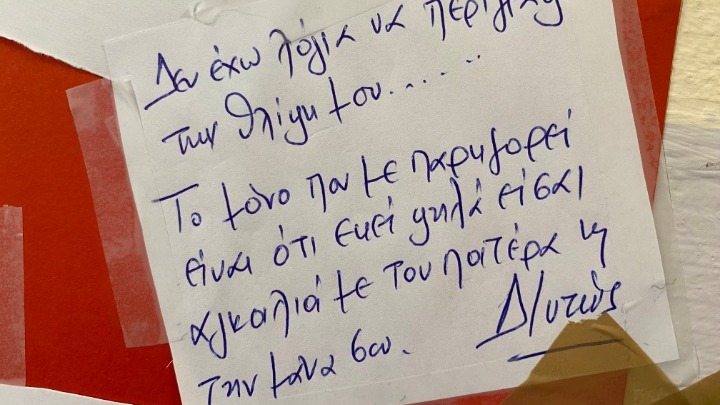 Δεν έχω λόγια να περιγράψω
την θλίψη μου......
Το μόνο που με παρηγορεί
είναι ότι εκεί ψηλά είσαι
αγκαλιά με τον πατέρα κ
την μάνα σου.